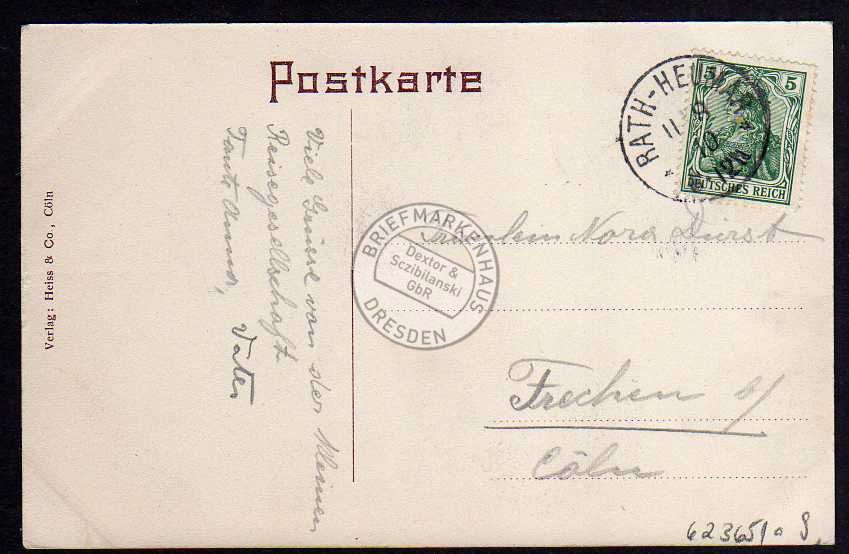 Postkarte
RATH-HEUMAR
11 9
10
12N
5 5
DEUTSCHES REICH
Viele Grüsse von der kleinen
Reisegesellschaft
Tante Anna, Vater
Fräulein Nora Durst
Frechen b/
Cöln
Verlag: Heiss & Co., Cöln
BRIEFMARKENHAUS
Dextor &
Sczibilanski
GbR
DRESDEN